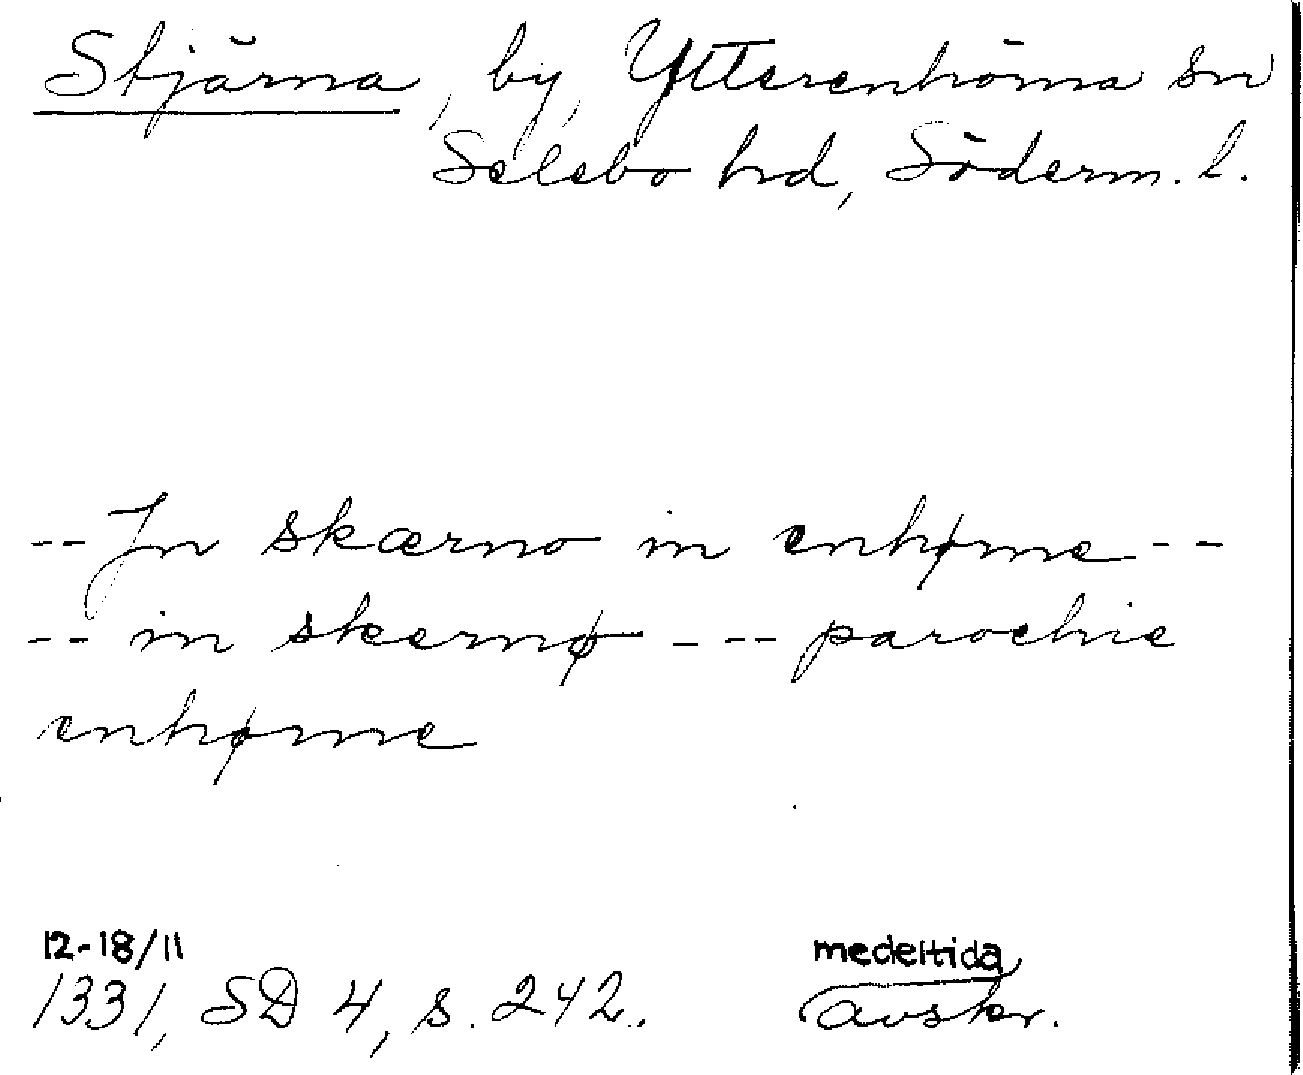 Stjärna, by, Ytterenhörna sn
Selebo hd, Söderm. l.
-- Jn skærno in enhørne --
-- in skernø --- parochie
enhørne
12-18/11 medeltida
1331, SD 4, s. 242. avskr.